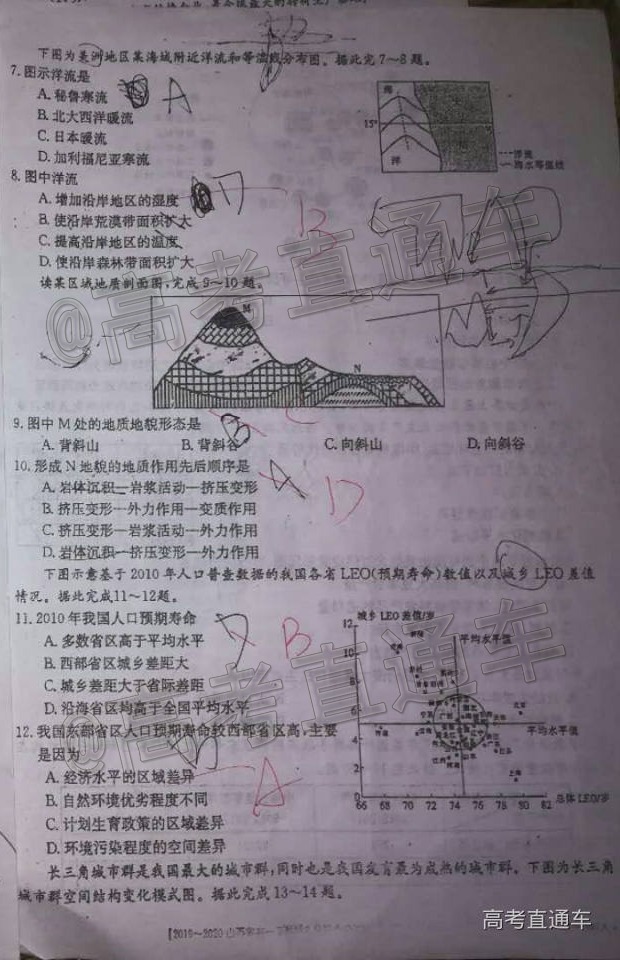 下图为美洲地区某海域附近洋流和等温线分布图。据此完7～8题。
7. 图示洋流是
A. 秘鲁寒流
A
B. 北大西洋暖流
C. 日本暖流
D. 加利福尼亚寒流
15°
洋
洋流
海水等温线
8. 图中洋流
A. 增加沿岸地区的湿度
B. 使沿岸荒漠带面积扩大
B
C. 提高沿岸地区的温度
D. 使沿岸森林带面积扩大
读某区域地质剖面图，完成9～10题。
M
N
9. 图中M处的地质地貌形态是
B
C
A. 背斜山 B. 背斜谷 C. 向斜山 D. 向斜谷
10. 形成N地貌的地质作用先后顺序是
A
A. 岩体沉积—岩浆活动—挤压变形
D
B. 挤压变形—外力作用—变质作用
C. 挤压变形—岩浆活动—外力作用
D. 岩体沉积—挤压变形—外力作用
下图示意基于2010年人口普查数据的我国各省LEO(预期寿命)数值以及城乡LEO差值
情况。据此完成11～12题。
11. 2010年我国人口预期寿命
B
A. 多数省区高于平均水平
B. 西部省区城乡差距大
C. 城乡差距大于省际差距
D. 沿海省区均高于全国平均水平
城乡LEO差值/岁
12
10
8
6
4
2
0
平均水平值
平均水平值
66 68 70 72 74 76 78 80 82
总体LEO/岁
12. 我国东部省区人口预期寿命较西部省区高，主要
是因为
A. 经济水平的区域差异
A
B. 自然环境优劣程度不同
C. 计划生育政策的区域差异
D. 环境污染程度的空间差异
长三角城市群是我国最大的城市群，同时也是我国发育最为成熟的城市群。下图为长三角
城市群空间结构变化模式图。据此完成13～14题。
@高考直通车
@高考直通车
高考直通车